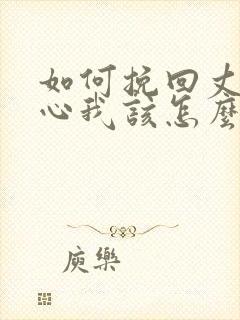 如何挽回丈
心我该怎麼
庾樂